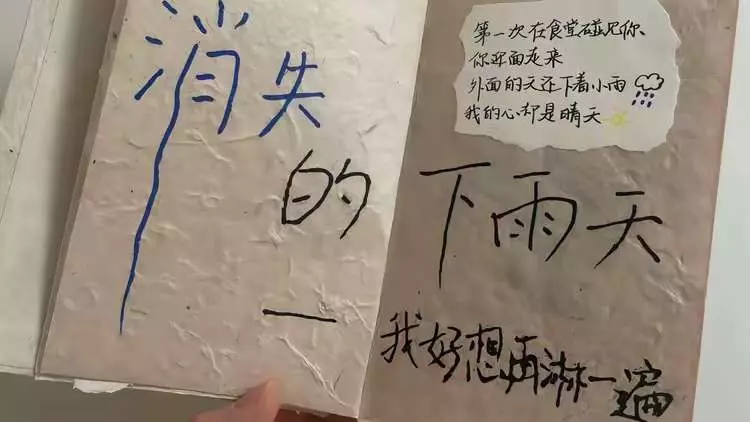 消失
的
第一次在食堂碰见你、
你迎面走来
外面的天还下着小雨
我的心却是晴天
下雨天
我好想再淋一遍